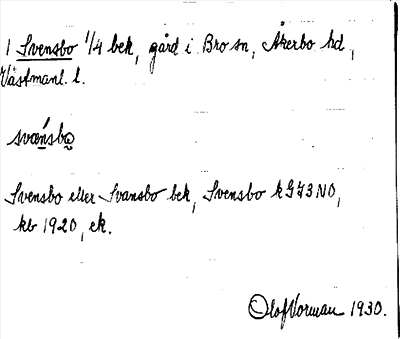 1 Svensbo 1/4 bek, gård i Bro sn, Åkerbo hd,
Västmanl. l.
svænsbo
Svensbo eller Svansbo bek, Svensbo k GJ3NO,
kb 1920, ek.
Olof Vorman 1930.